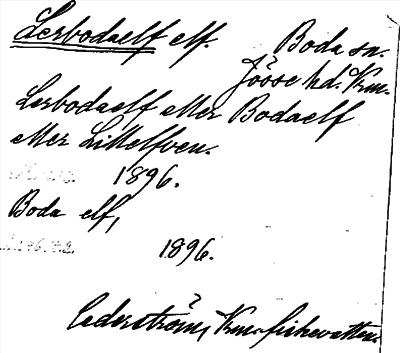 Lerbodaelf elf. Boda sn.
Jösse hd. Krm.
Lerbodaelf eller Bodaelf
eller Lillelfven.
1896.
Boda elf,
1896.
Cederström, Krm. fiskevatten.